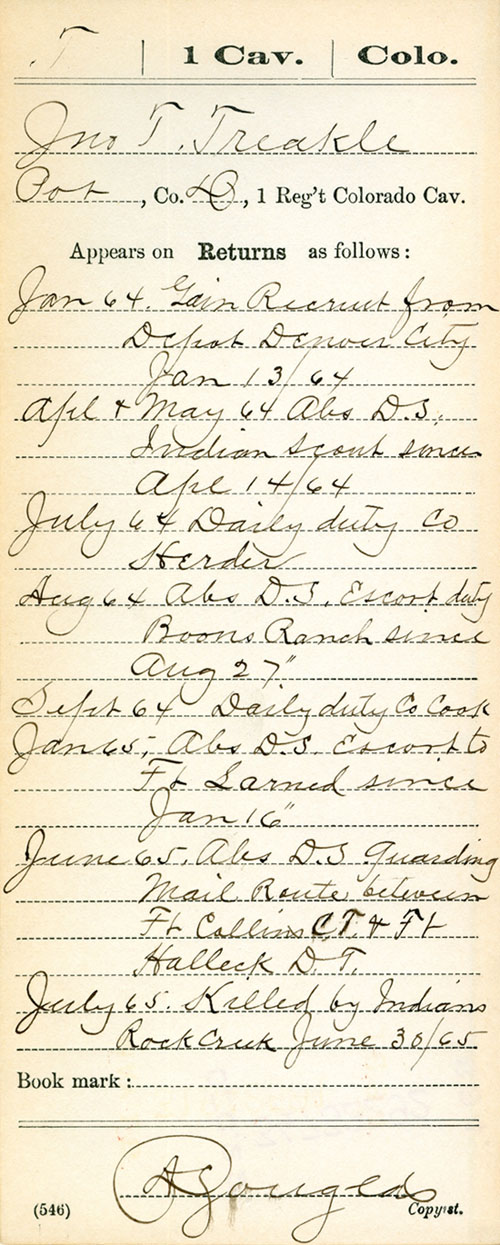 T | 1 Cav. | Colo.
Jno T. Treakle
Pvt, Co. D, 1 Reg't Colorado Cav.
Appears on Returns as follows:
Jan 64. Gain Recruit from
Depot Denver City
Jan 13/64
Apl & May 64 Abs D.S.
Indian Scout since
Apl 14/64
July 64 Daily duty Co
Herder
Aug 64 Abs D.S. Escort duty
Boons Ranch since
Aug 27"
Sept 64 Daily duty Co Cook
Jan 65, Abs D.S. Escort to
Ft Larned since
Jan 16"
June 65. Abs D.S Guarding
Mail Route between
Ft Collins C.T. & Ft
Halleck D.T.
July 65. Killed by Indians
Rock Creek June 30/65
Book mark:
(546) Copyist.